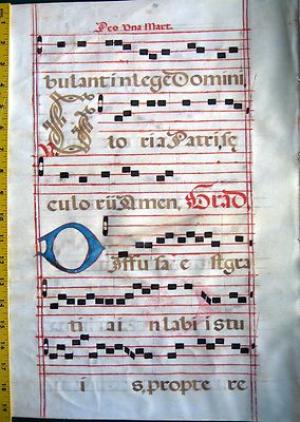 Pro Vna Mart.
bulant in lege Domini
G lo ria Patri, sę
culo rū Amen. Grad.
D Iffu sa e st gra
ti a i n labi i s tu
i s, propte re